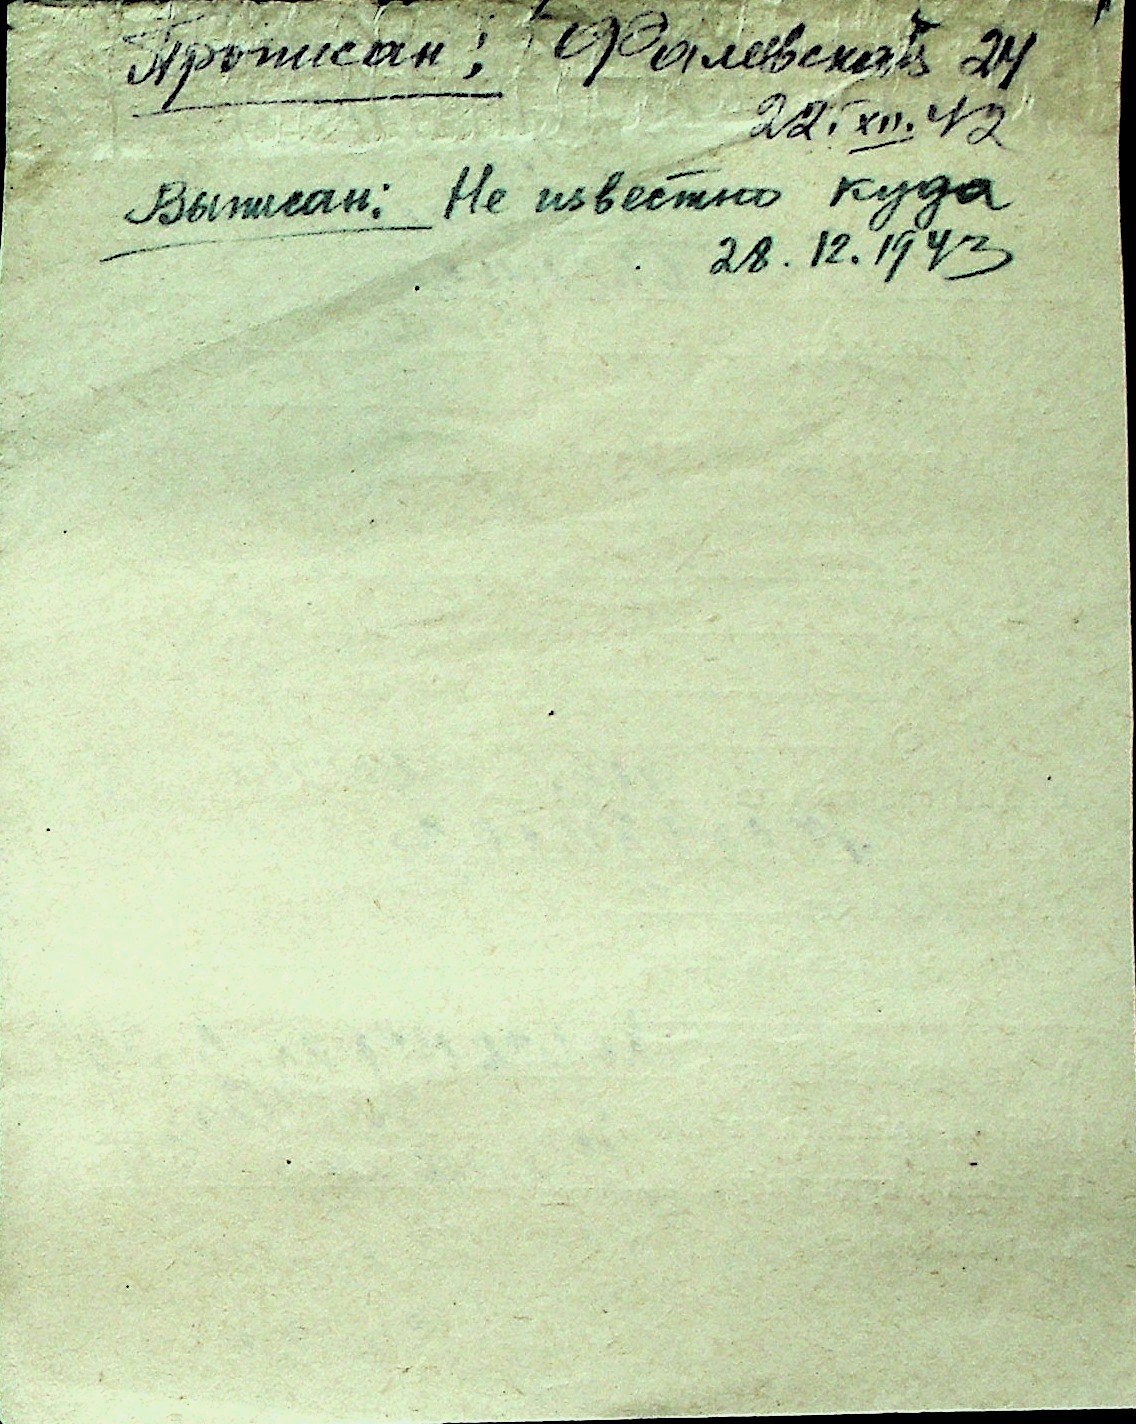 Прописан: Фалевская 24
22.XII.42
Выписан: Не известно куда
28.12.1943